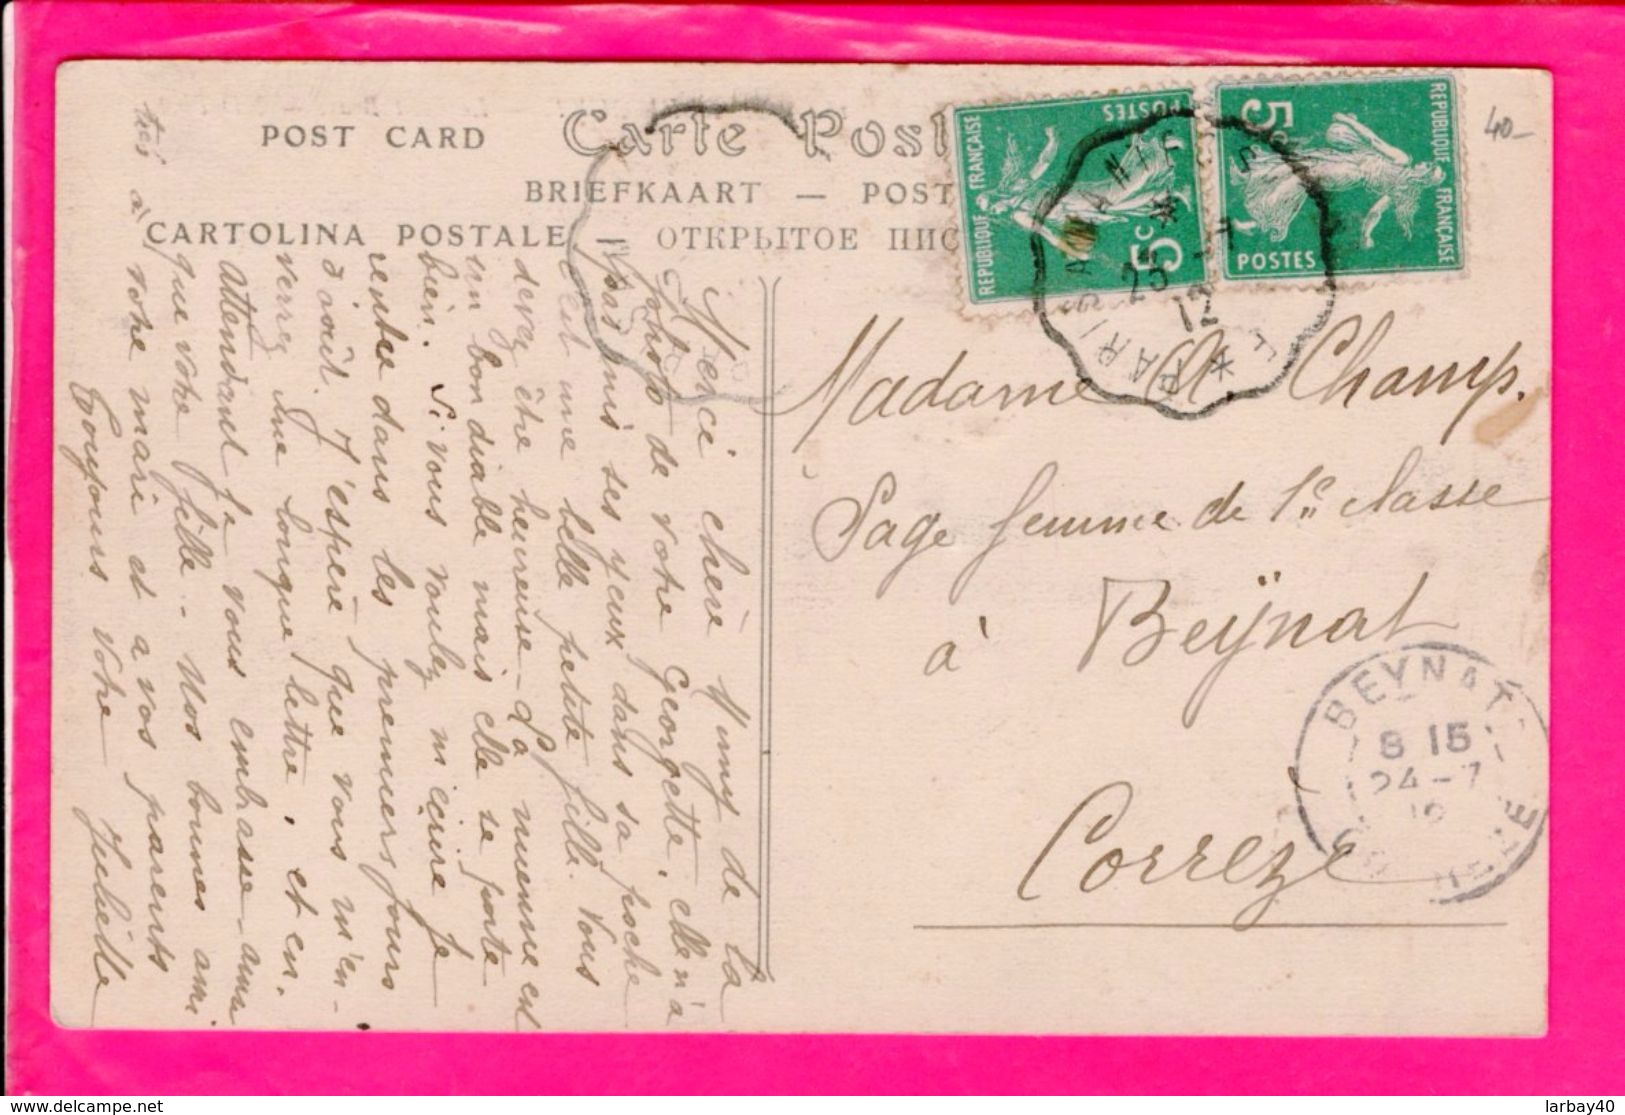 POST CARD
Carte Post
BRIEFKAART — POST
CARTOLINA POSTALE — ОТКРЫТОЕ ПИС
REPUBLIQUE FRANÇAISE
POSTES
5c
REPUBLIQUE FRANÇAISE
POSTES
5c
40-
PARI
12
Madame A. Champ.
Sage femme de 1re classe
à Beÿnat
Corrèze
BEYNAT
8 15
24-7
Merci chère Mimy de la
photo de votre Georgette, elle n'a
pas mis ses yeux dans sa poche
c'est une belle petite fille. Vous
devez être heureuse - La mienne est
un bon diable mais elle se porte
bien. Si vous voulez m'écrire je
rentre dans les premiers jours
d'août. J'espère que vous m'en-
verrez une longue lettre, et en
attendant je vous embrasse ainsi
que votre fille - Nos bonnes ami
tiés à votre mari et a vos parents
Toujours votre
larbay40
http://www.delcampe.net